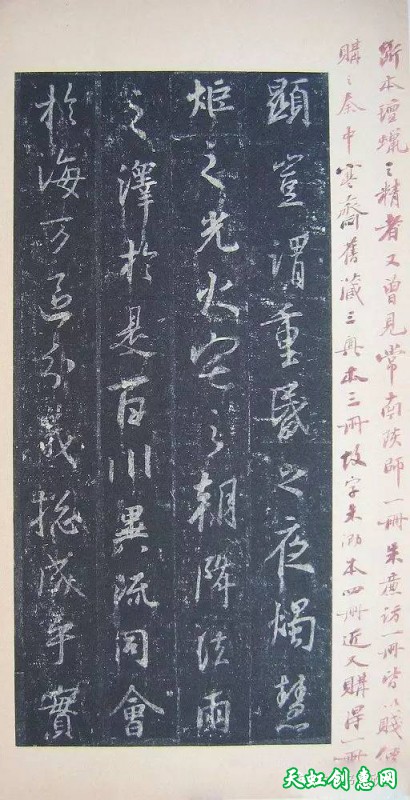 斷本氊蠟之精者又曾見常南陔師一冊朱廣訪一冊皆以賤價
購之秦中寒齋舊藏三本三冊故字未泐本四冊近又購得一冊
顯豈謂重昬之夜燭慧
炬之光火宅之朝降法雨
之澤於是百川異流同會
於海万區分義揔成乎實
天虹创惠网